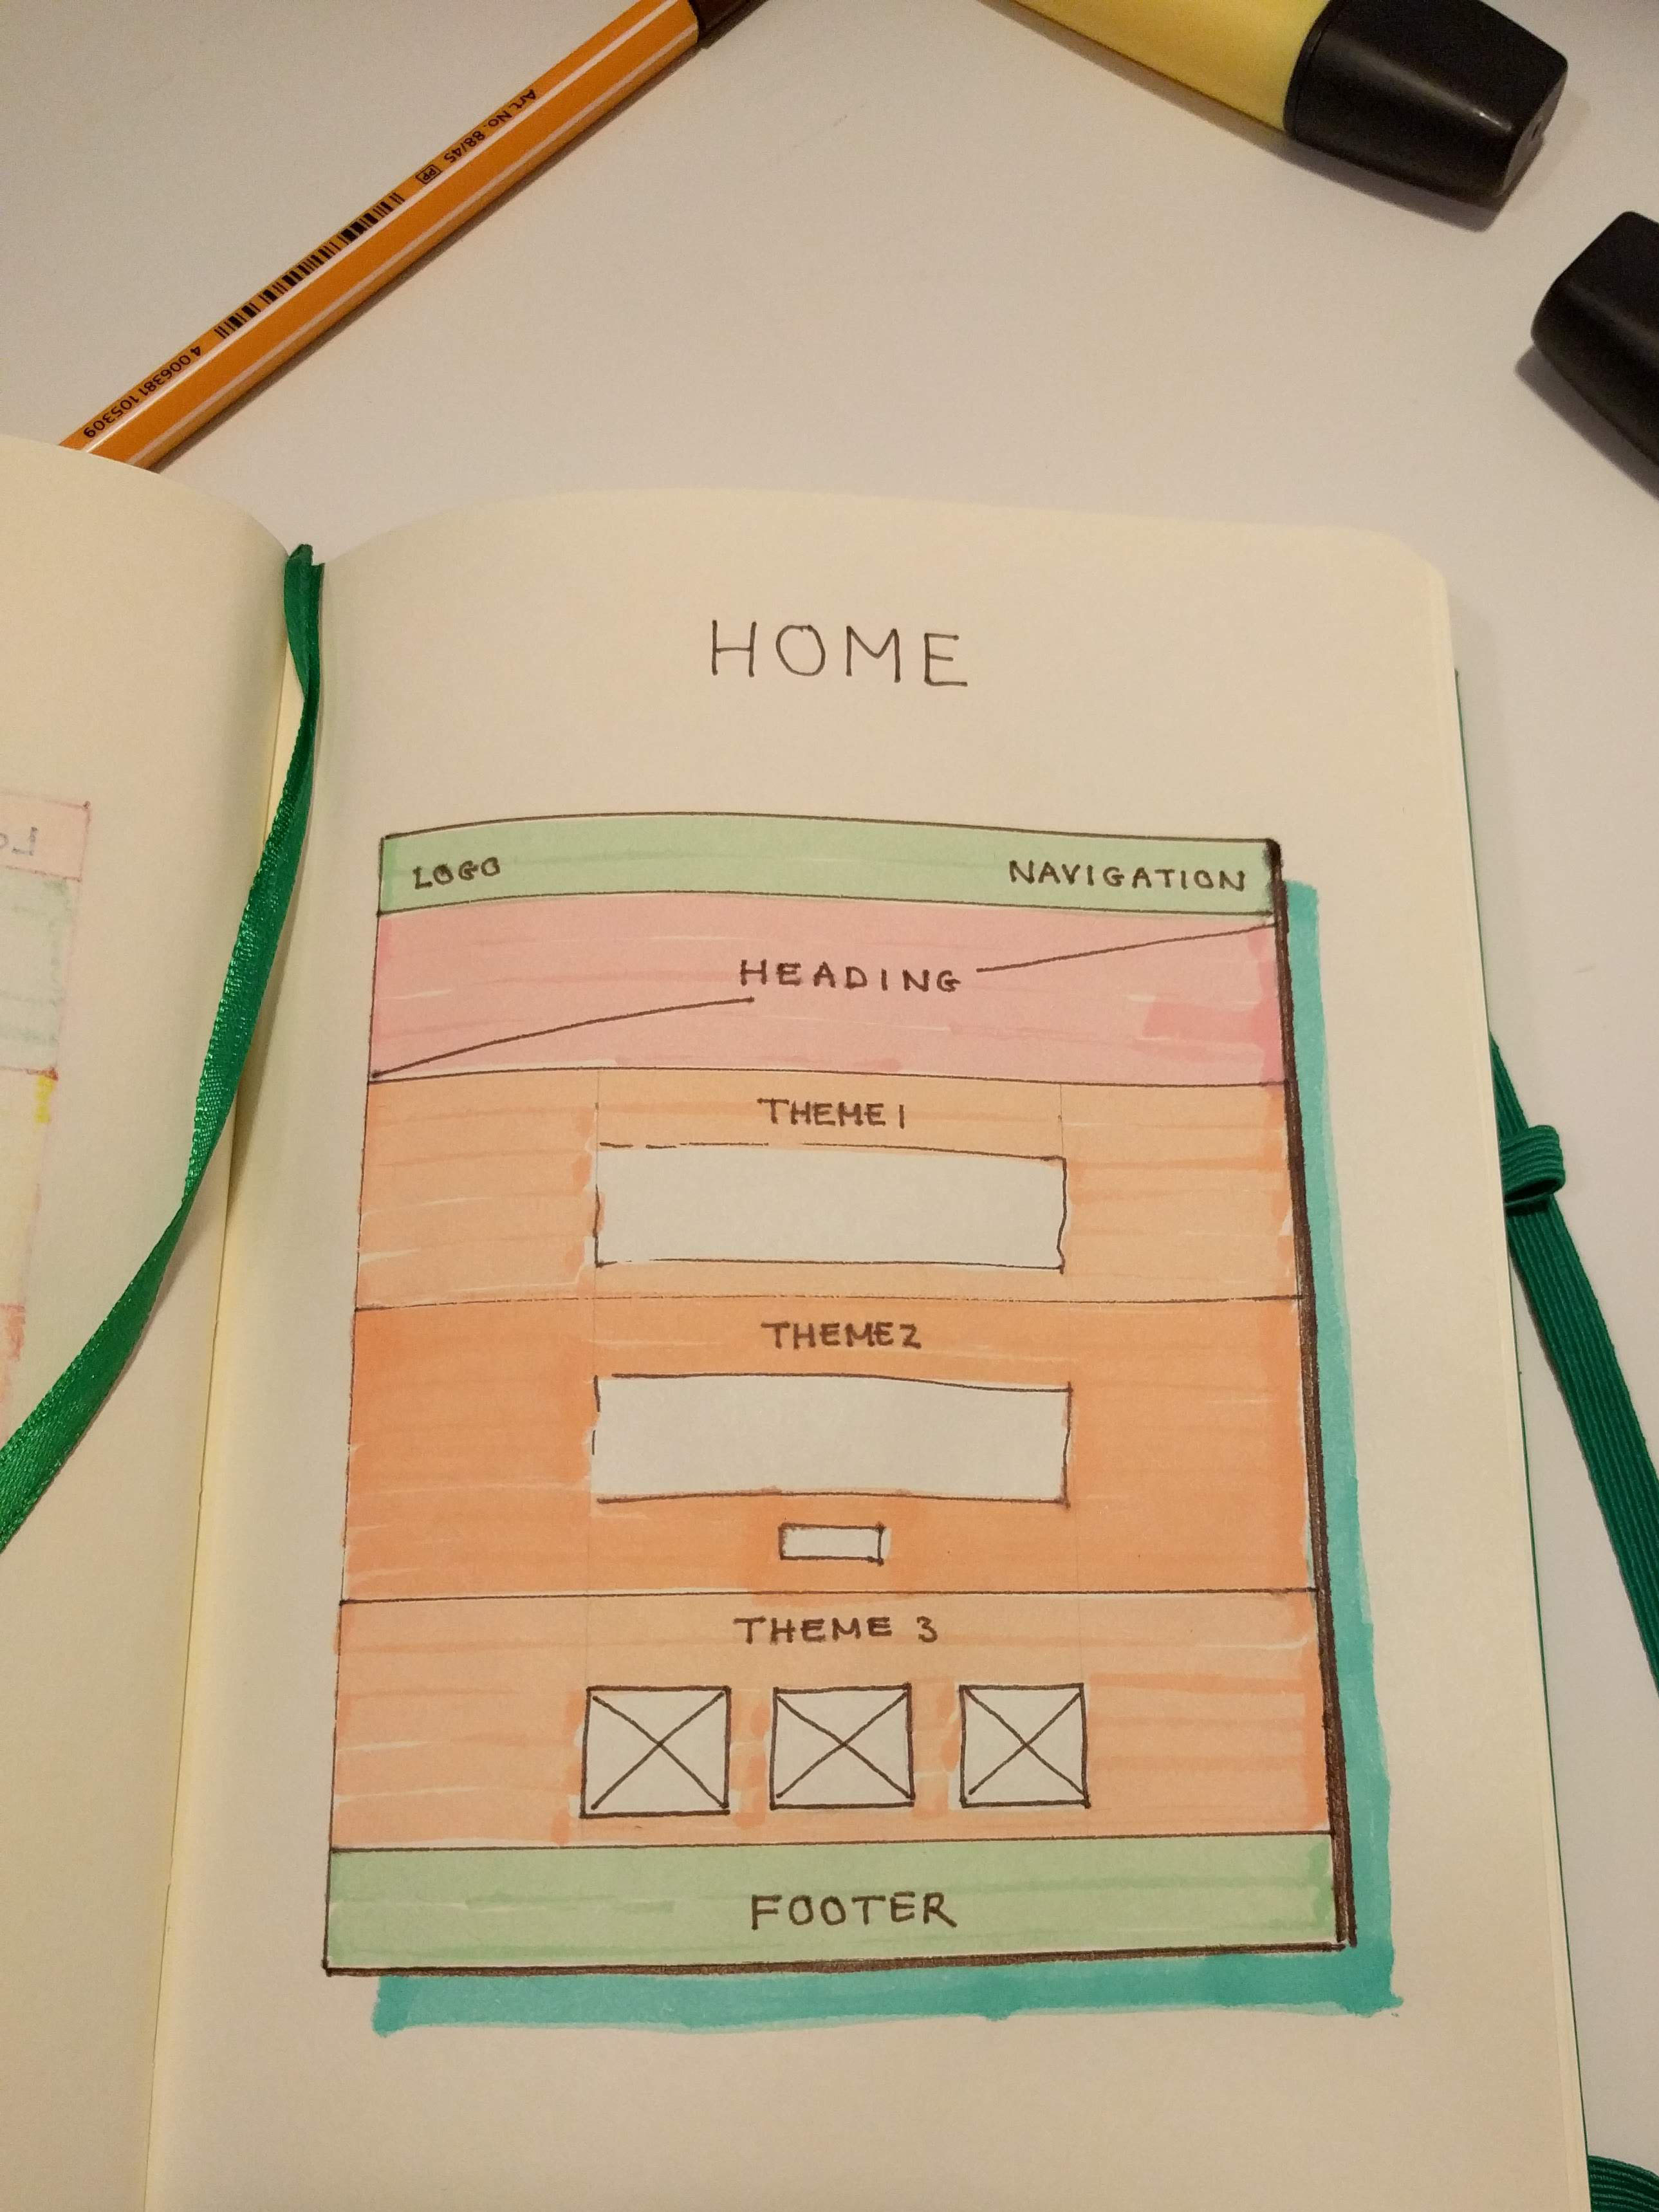 Art. No. 88/45 PP
4 006381 105309
HOME
LOGO NAVIGATION
HEADING
THEME 1
THEME 2
THEME 3
FOOTER